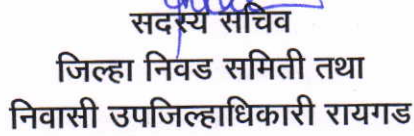 सदस्य सचिव
जिल्हा निवड समिती तथा
निवासी उपजिल्हाधिकारी रायगड